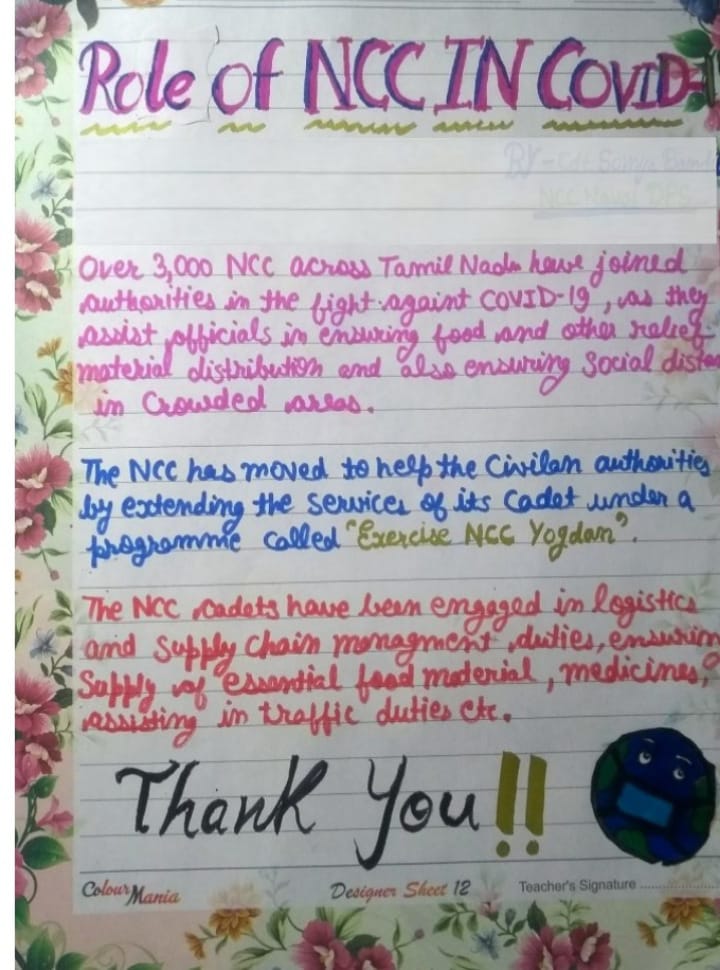 Role of NCC IN COVID-1
By - Cdt Somya
NCC Naval DPS
Over 3,000 NCC across Tamil Nadu have joined
authorities in the fight againt COVID-19, as they
assist officials in ensuring food and other relief
material distribution and also ensuring Social distan
in Crowded areas.
The NCC has moved to help the Civilan authorities
by extending the services of its Cadet under a
programme called "Exercise NCC Yogdan".
The NCC cadets have been engaged in logistics
and supply chain managment duties, ensuring
Supply of essential food material, medicines,
assisting in traffic duties etc.
Thank You!!
Colour Mania Designer Sheet 12 Teacher's Signature ....................